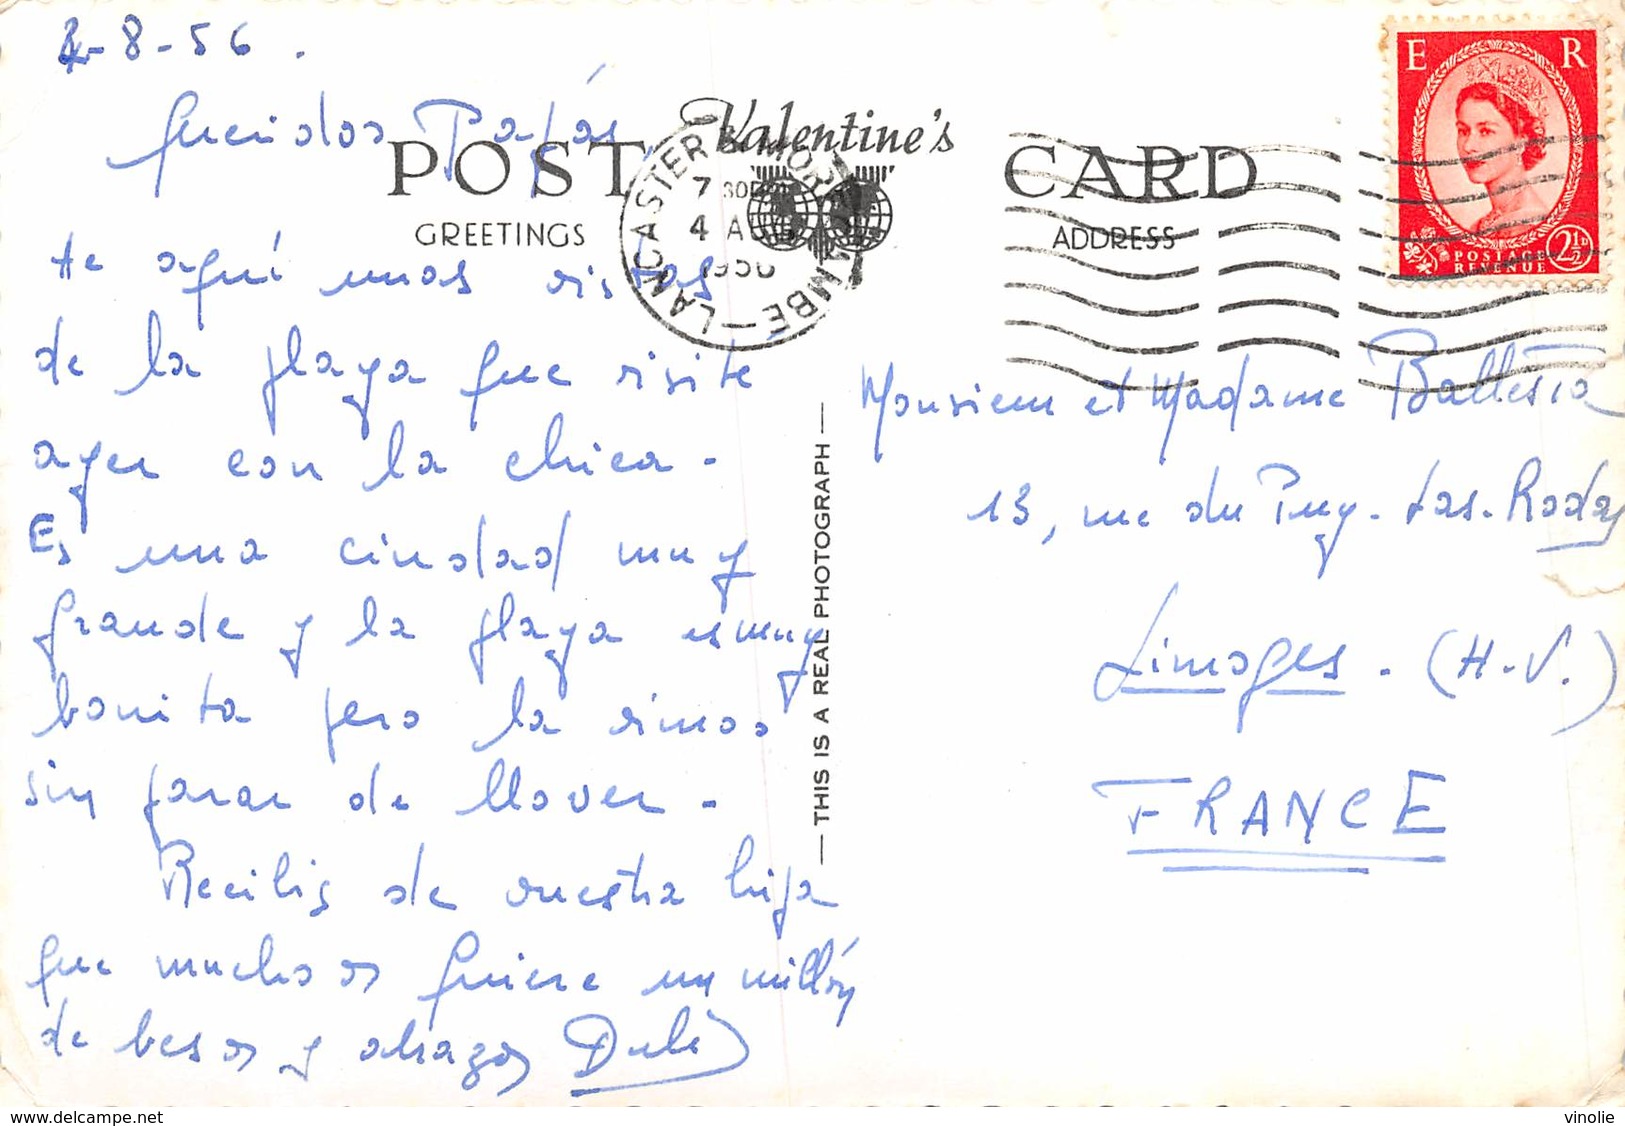 4-8-56.
Queridos Papás,
POST CARD
Valentine's
GREETINGS
ADDRESS
LANCASTER & MORECAMBE
7 30PM
4 AU
1956
E R
POSTAGE
REVENUE
2½D
He aquí unas vistas
de la playa que visité
ayer con la chica.
Es una ciudad muy
grande y la playa es muy
bonita pero la vimos
sin parar de llover.
Recibís de vuestra hija
que mucho os quiere un millón
de besos y abrazos
THIS IS A REAL PHOTOGRAPH
Monsieur et Madame
13, rue du Puy-Las-Rodas
Limoges. (H-V.)
FRANCE
www.delcampe.net
vinolie